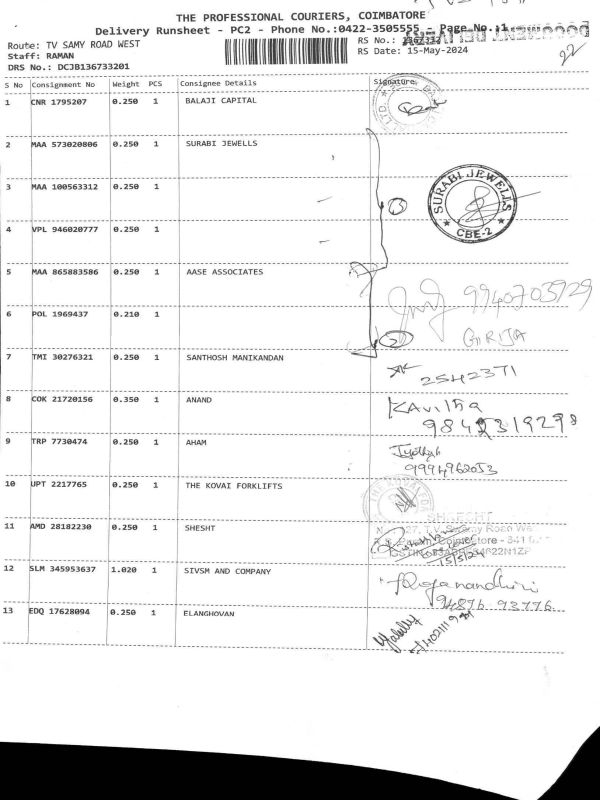 THE PROFESSIONAL COURIERS, COIMBATORE
Delivery Runsheet - PC2 - Phone No.:0422-3505555 - Page No.:1
DOCUMENT DELIVERY
Route: TV SAMY ROAD WEST
RS No.:
Staff: RAMAN
RS Date: 15-May-2024
22
DRS No.: DCJB136733201
S No Consignment No Weight PCS Consignee Details Signature
1 CNR 1795207 0.250 1 BALAJI CAPITAL
2 MAA 573020806 0.250 1 SURABI JEWELLS
3 MAA 100563312 0.250 1
SURABI JEWELLS
* CBE-2 *
4 VPL 946020777 0.250 1
5 MAA 865883586 0.250 1 AASE ASSOCIATES
9940703929
6 POL 1969437 0.210 1
2 GIRIJA
7 TMI 30276321 0.250 1 SANTHOSH MANIKANDAN
2542371
8 COK 21720156 0.350 1 ANAND
Kavitha
9 TRP 7730474 0.250 1 AHAM
Jyothish
9994962053
10 UPT 2217765 0.250 1 THE KOVAI FORKLIFTS
SHSESHT
11 AMD 28182230 0.250 1 SHESHT
27, T.V. Swamy Road We
Coimbatore - 641
15/5/24
12 SLM 345953637 1.020 1 SIVSM AND COMPANY
Roganandhini
94876 93776
13 EDQ 17628094 0.250 1 ELANGHOVAN